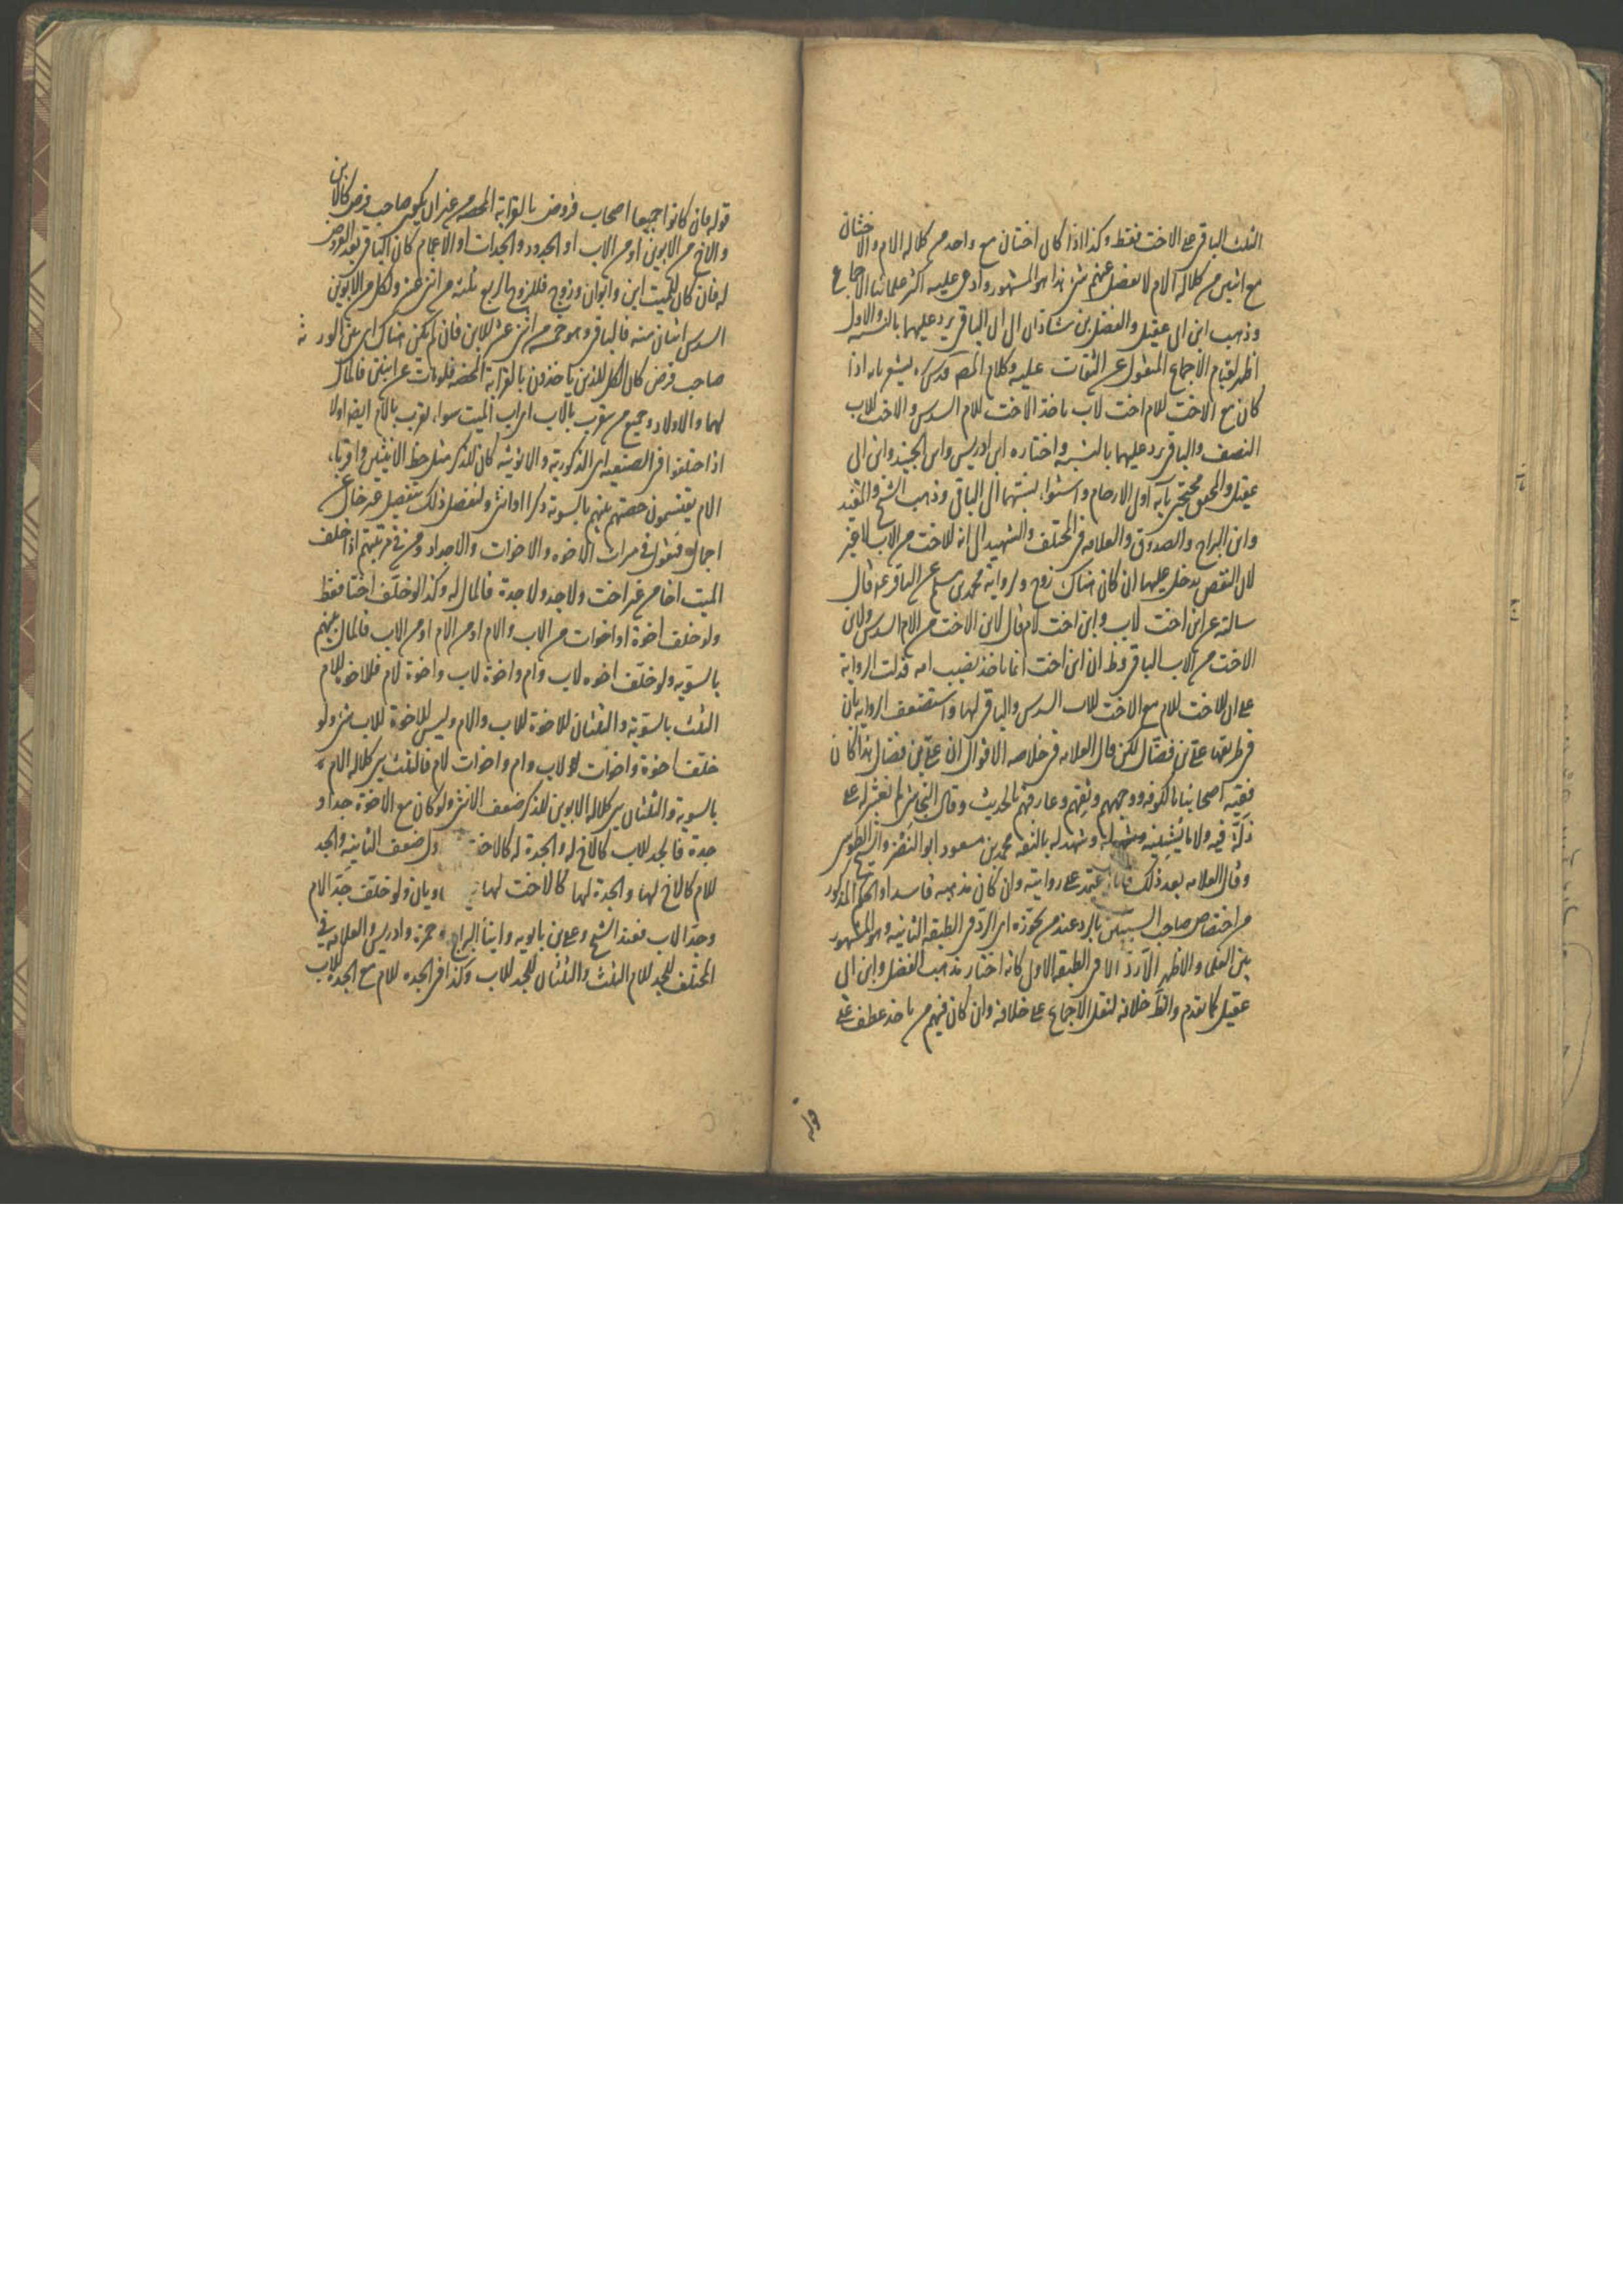 الثلث الباقی علی الاخت فقط وکذا اذا کان اختان مع واحد من کلاله الام والاختان
مع اثنین من کلاله الام لا یفضل عنهم شئ هذا هو المشهور وادعی علیه اکثر علمائنا الاجماع
وذهب ابن ابی عقیل والفضل بن شاذان الی ان الباقی یرد علیهما بالنسبه والاول
اظهر لقیام الاجماع المنقول عن الثقات علیه وکلام المص قدس یشعر بانه اذا
کان مع الاخت للام اخت لاب یاخذ الاخت للام السدس والاخت للاب
النصف والباقی یرد علیهما بالنسبه واختاره ابن ادریس وابن الجنید وابن ابی
عقیل والمحقق محتجین بآیه اولی الارحام واستواء نسبتهما الی الباقی وذهب الشیخ والمفید
وابن البراج والصدوق والعلامه فی المختلف والشهید الی انه للاخت من الاب لا غیر
لان النقص یدخل علیها ان کان هناک زوج ولروایة محمد بن مسلم عن الباقر ع قال
سالته عن ابن اخت لاب وابن اخت لام قال لابن الاخت من الام السدس ولابن
الاخت من الاب الباقی وظ ان ابن اخت انما یاخذ نصیب امه فدلت الروایة
علی ان للاخت للام مع الاخت للاب السدس والباقی لها واستضعف الروایه بان
فی طریقها علی بن فضال لکن قال العلامه فی خلاصه الاقوال ان علی بن فضال هذا کان
فقیه اصحابنا بالکوفه ووجههم وثقتهم وعارفهم بالحدیث وقال النجاشی لم یعثر له علی
زلّة فیه ولا ما یشینه وشهد له بالثقه محمد بن مسعود ابو النضر والشیخ الطوسی
وقال العلامه بعد ذلک فانا اعتمد علی روایته وان کان مذهبه فاسدا والحکم المذکور
من اختصاص صاحب السببین بالرد عند من یجوّزه ای الردّ فی الطبقه الثانیه وهو المشهور
بین العلماء والاظهر الّا ردّ الا فی الطبقه الاولی کانه اختار مذهب الفضل وابن ابی
عقیل کما تقدم والظ خلافه لنقل الاجماع علی خلافه وان کان فیهم من یاخذ عطف علی
قوله
قوله فان کانوا جمیعا اصحاب فروض بالقرابة المحضه من غیر ان یکون صاحب فرض کالابن
والاخ من الابوین او من الاب او الجدود والجدات او الاعمام کان الباقی بعد الفروض
له فان کان للمیت ابن وابوان وزوج فللزوج الربع ثلثه من اثنی عشر ولکل من الابوین
السدس اثنان منه فالباقی وهو خمسه من اثنی عشر للابن فان لم یکن هناک ای بین الورثة
صاحب فرض کان الکل للذین یاخذون بالقرابة المحضه فلو مات عن ابنین فالمال
لهما والاولاد وجمیع من یتقرب بالاب ای اب المیت سواء یقرب بالام ایضا اولا
اذا اختلفوا فی الصنفیه ای الذکوریة والانوثیه کان للذکر مثل حظ الانثیین واقرباء
الام یقتسمون حصتهم بینهم بالسویة ذکرا او انثی ولنفصل ذلک بتفصیل غیر خال عن
اجمال فنقول فی میراث الاخوه والاخوات والاجداد ومن فی مرتبتهم اذا خلف
المیت اخا من غیر اخت ولا جد ولا جدة فالمال له وکذا لو خلّف اختا فقط
ولو خلف اخوة او اخوات من الاب والام او من الام او من الاب فالمال بینهم
بالسویه ولو خلّف اخوه لاب وام واخوة لاب واخوة لام فللاخوه للام
الثلث بالسویة والثلثان للاخوة للاب والام ولیس للاخوة للاب شئ ولو
خلّف اخوة واخوات لاب وام واخوات لام فالثلث بین کلاله الام
بالسویة والثلثان بین کلاله الابوین للذکر ضعف الانثی ولو کان مع الاخوة جد او
جدة فالجد للاب کالاخ له والجدة له کالاخت ضعف الثانیه والجد
للام کالاخ لها والجدة لها کالاخت لها ولو خلّف جدّ الام
وجدّ الاب فعند الشیخ وعلی بن بابویه وابنا البراج وحمزه وادریس والعلامه فی
المختلف للجد للام الثلث والثلثان للجد للاب وکذا فی الجده للام مع الجدة للاب